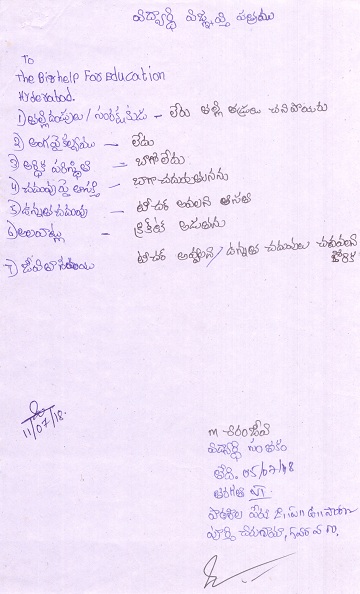 విద్యార్థి విజ్ఞప్తి పత్రము
To
The Birshelp For Education
Hyderabad.
1) తల్లిదండ్రులు / సంరక్షకుడు - లేరు తల్లి తండ్రులు చనిపోయారు
2) అంగవైకల్యము - లేదు
3) ఆర్థిక పరిస్థితి - బాగోలేదు
4) చదువుపై ఆసక్తి - బాగా చదువుతునను
5) ఉన్నత చదువు - టీచర్ అవలని ఆశత
6) అలవాట్లు - క్రికెట్ ఆడుతను
7) జీవితాశయం టీచర్ అవ్వాలని / ఉన్నత చదువులు చదవాలని కోరిక
11/07/18.
m చిరంజీవి
విద్యార్థి సంతకం
తేది. 05/07/18
తరగతి VI
పాఠశాల పేరు